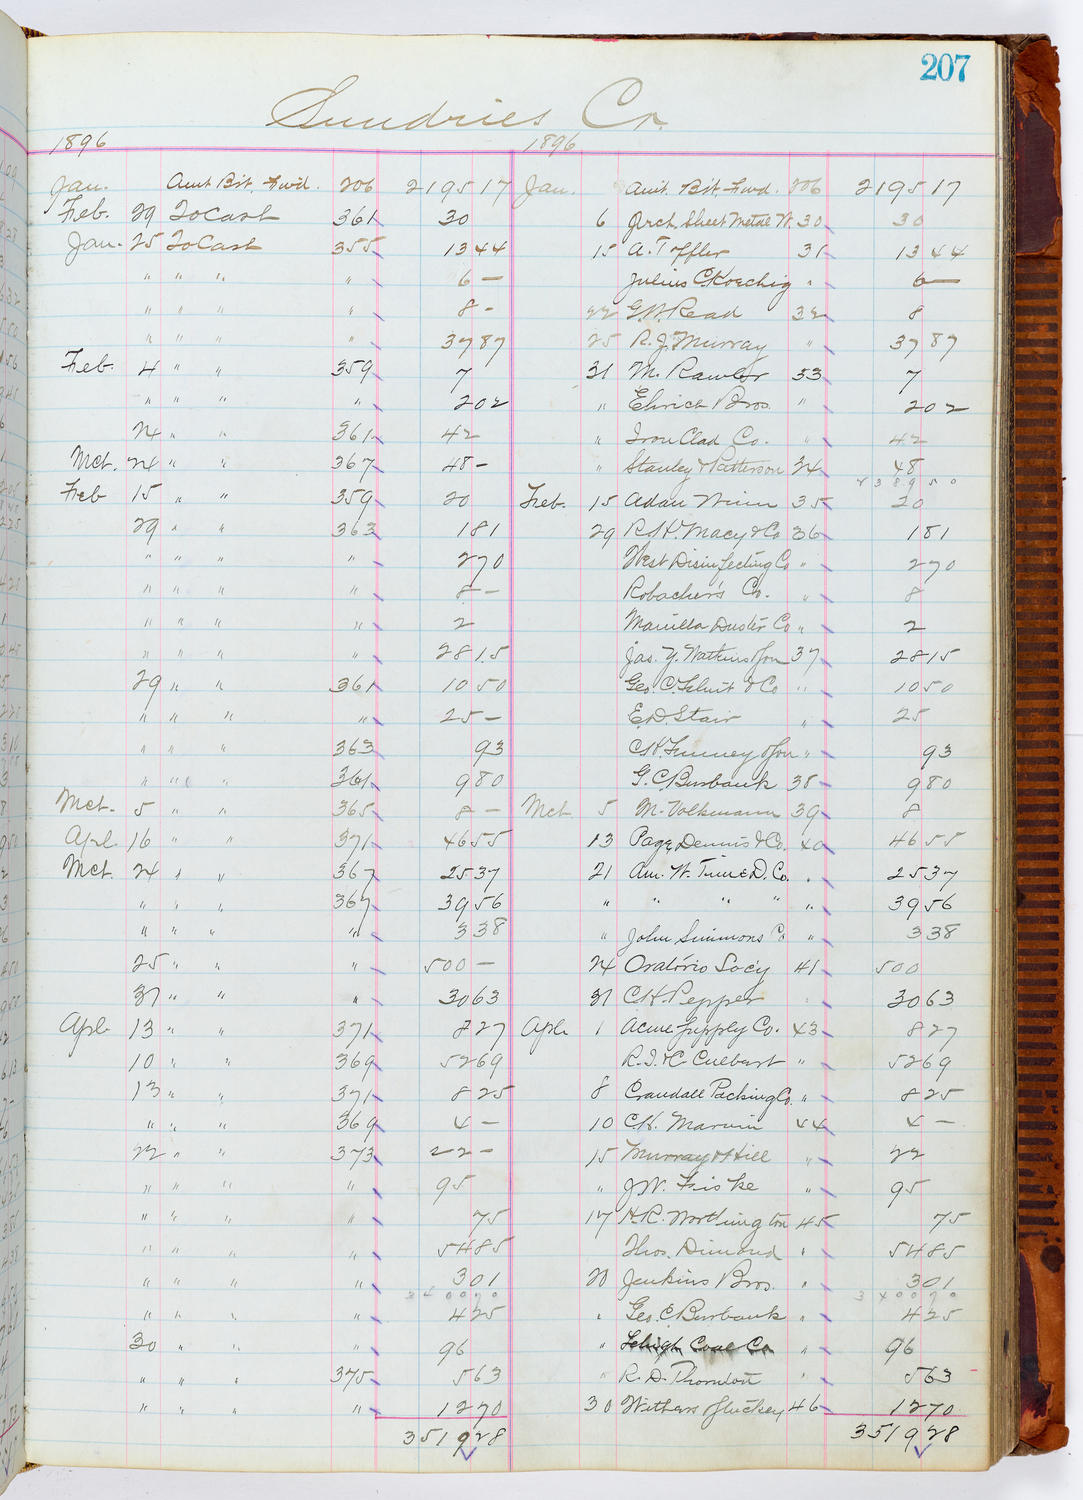 207
Sundries Cr.
1896 1896
Jan. Amt Bt. Fwd. 206 2195 17 Jan. Amt. Bt. Fwd. 206 2195 17
Feb. 29 To Cash 361 30 6 Arch. Sheet Metal W. 30 30
Jan. 25 To Cash 355 13 44 15 A. Toffler 31 13 44
" " " " 6 — Julius C. Koechig " 6 —
" " " " 8 - 22 G.W. Read 32 8
" " " " 37 87 25 R. J. Murray " 37 87
Feb. 4 " " 359 7 31 M. Rawlor 33 7
" " " " 2 02 " Ehrich Bros. " 2 02
24 " " 361 42 " Iron Clad Co. " 42
Mch. 24 " " 367 48 - " Stanley & Patterson 34 48
2389 50
Feb 15 " " 359 20 Feb. 15 Adam Winn 35 20
29 " " 363 1 81 29 R.H. Macy & Co 36 1 81
" " " " 2 70 West Disinfecting Co " 2 70
" " " " 8 — Robacher's Co. " 8
" " " " 2 Manilla Duster Co " 2
" " " " 28 15 Jas. Y. Watkins & Son 37 28 15
29 " " 361 10 50 Geo. C. & Co " 10 50
" " " " 25 — E.D. Stair " 25
" " " 363 93 C.H. Finney & Son " 93
" " " 361 9 80 G. C. Burbank 38 9 80
Mch. 5 " " 365 8 — Mch 5 M. Volkmann 39 8
Apl. 16 " " 371 46 55 13 Page, Dennis & Co. 40 46 55
Mch. 24 " " 367 25 37 21 Am. W. Time D. Co. " 25 37
" " " 367 39 56 " " " " " 39 56
" " " " 3 38 " John Simmons Co " 3 38
25 " " " 500 — 24 Oratorio Soc'y 41 500
31 " " " 30 63 31 C.H. Pepper " 30 63
Apl. 13 " " 371 8 27 Apl. 1 Acme Supply Co. 43 8 27
10 " " 369 52 69 R.I. & C. Culbert " 52 69
13 " " 371 8 25 8 Crandall Packing Co. " 8 25
" " " 369 4 — 10 C.H. Marvin 44 4 —
22 " " 373 22 - 15 Murray Hill " 22
" " " " 95 " J.W. Fiske " 95
" " " " 75 17 H.R. Worthington 45 75
" " " " 54 85 Thos. Dimond " 54 85
" " " " 3 01 20 Jenkins Bros. " 3 01
3400 70 3400 70
" " " " 4 25 " Geo. C. Burbank " 4 25
30 " " " 96 " Lehigh Coal Co " 96
" " " 375 5 63 " R. D. Thornton " 5 63
" " " " 12 70 30 46 12 70
3519 28 3519 28